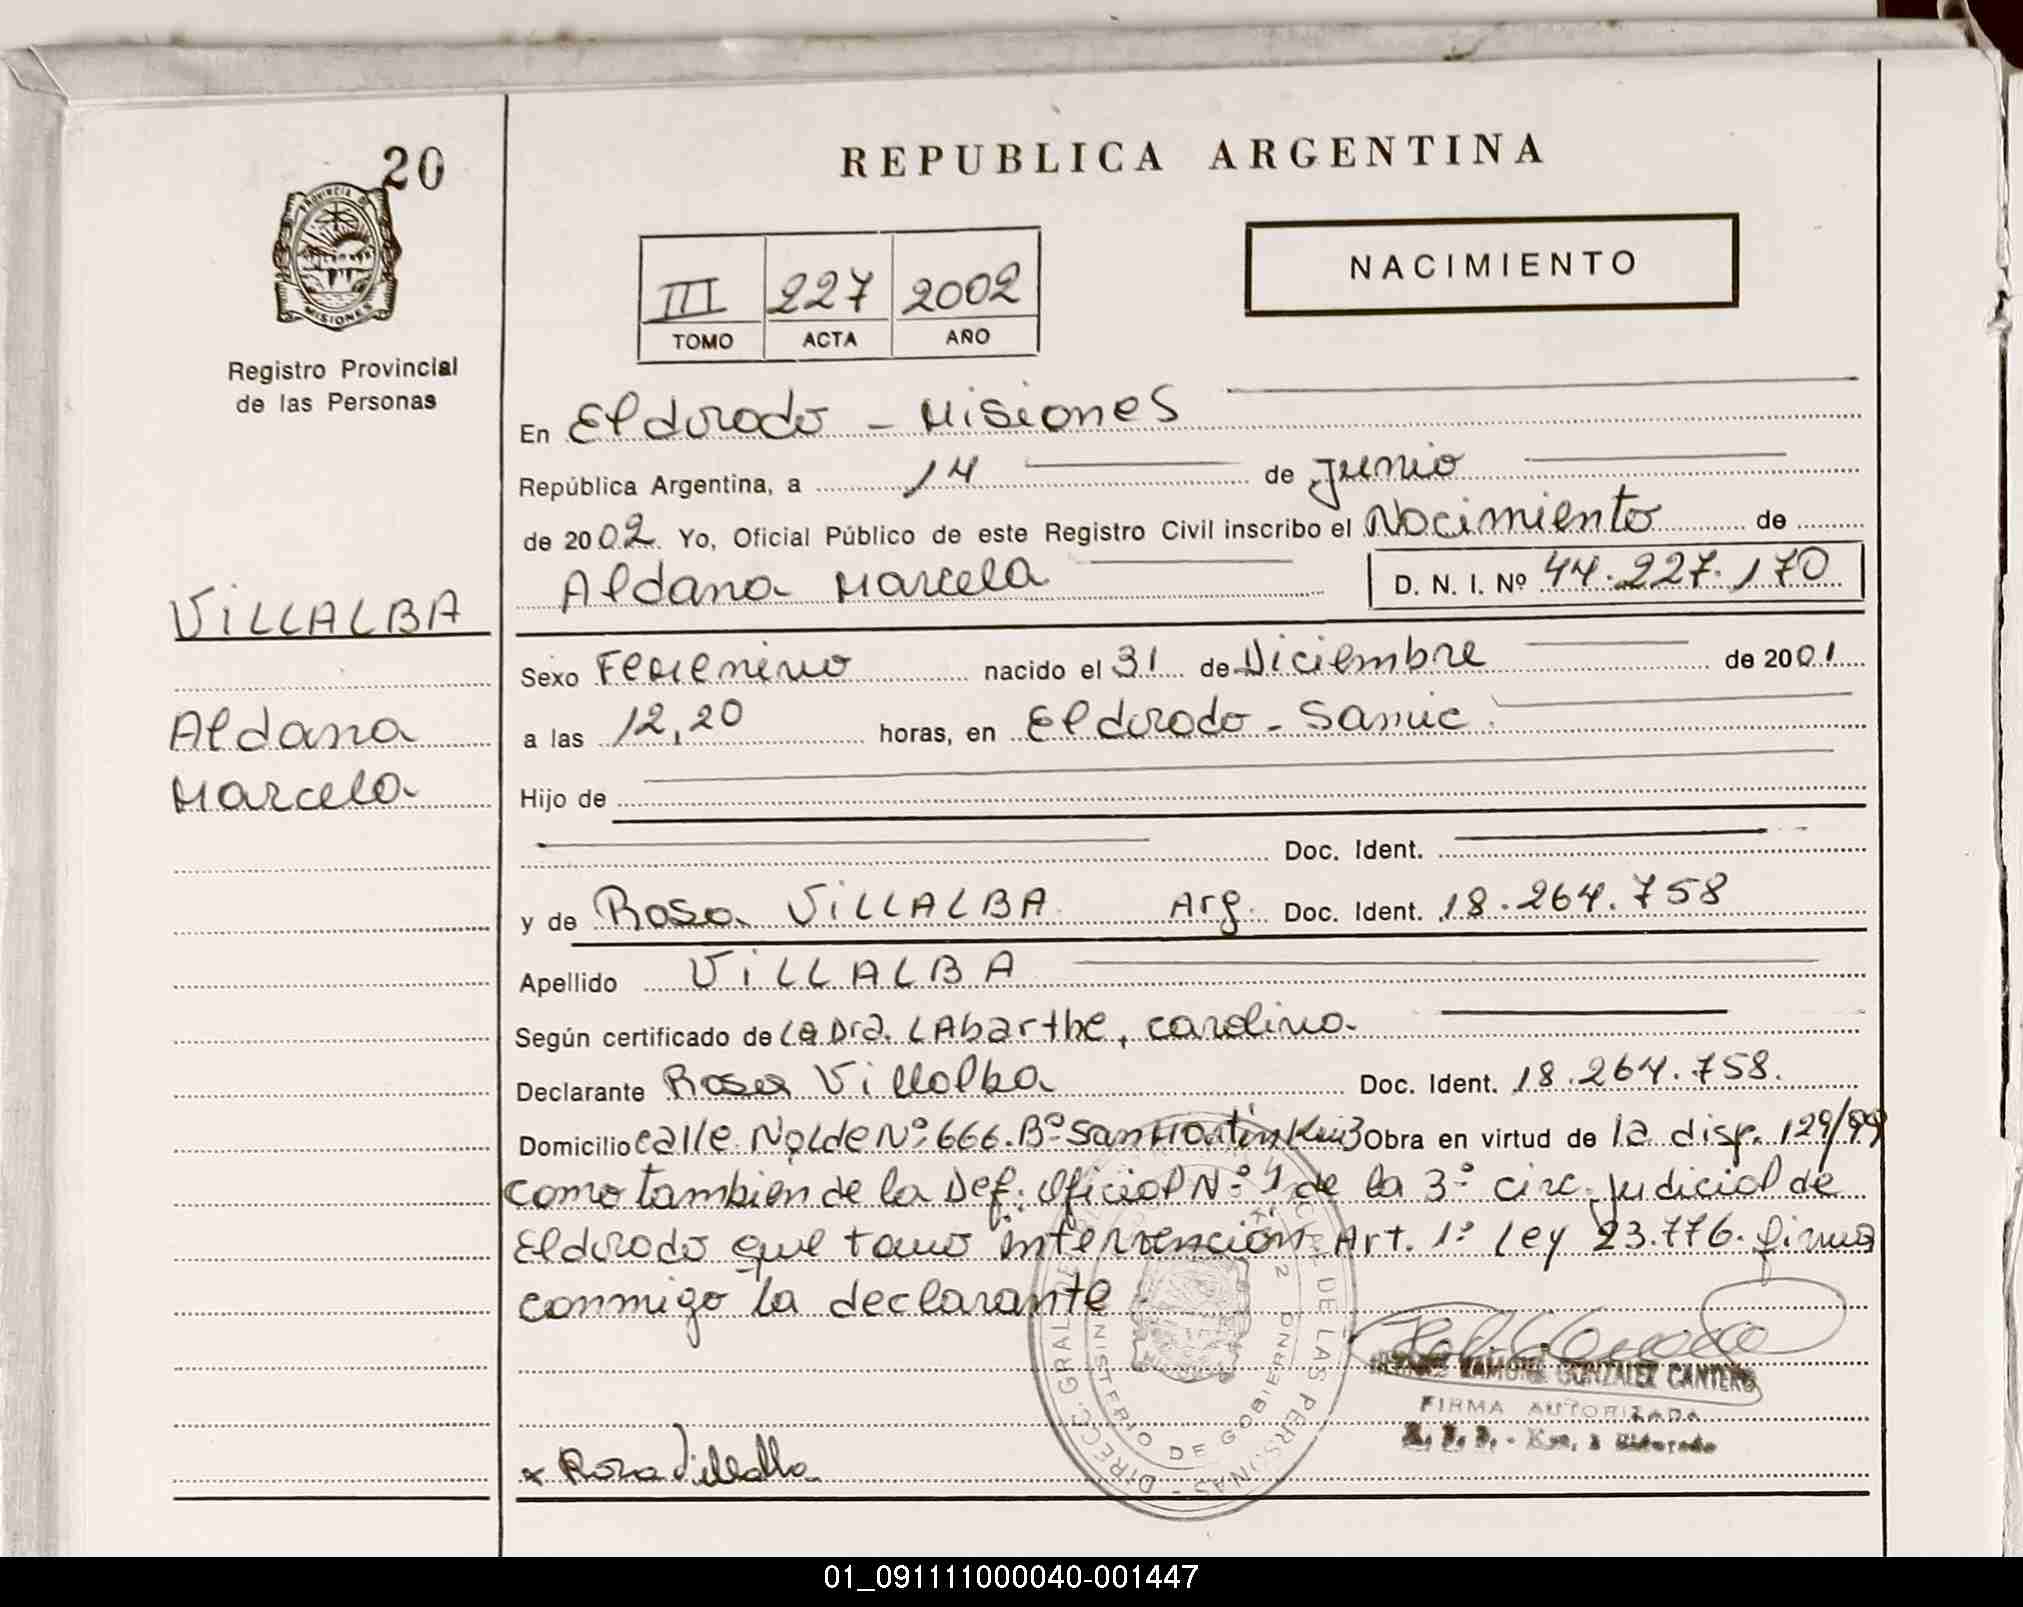 20
PROVINCIA DE
MISIONES
Registro Provincial
de las Personas
REPUBLICA ARGENTINA
III 227 2002
TOMO ACTA AÑO
NACIMIENTO
En Eldorado - Misiones
República Argentina, a 14 de Junio
de 2002. Yo, Oficial Público de este Registro Civil inscribo el Nacimiento de
Aldana Marcela D. N. I. Nº 44.227.170
VILLALBA
Aldana
Marcela
Sexo Femenino nacido el 31 de Diciembre de 2001
a las 12,20 horas, en Eldorado - Samic.
Hijo de
Doc. Ident.
y de Rosa VILLALBA Arg. Doc. Ident. 18.264.758
Apellido VILLALBA
Según certificado de la Dra. LAbarthe, Carolina.
Declarante Rosa Villalba Doc. Ident. 18.264.758.
Domicilio calle Nolde Nº 666. Bº San Martín Km 3 Obra en virtud de la disp. 129/99
como tambien de la Def. Oficial Nº 1 de la 3º circ. Judicial de
Eldorado que tomo intervención Art. 1º Ley 23.776. firma
conmigo la declarante
DIRECC. GRAL. DE LAS PERSONAS
MINISTERIO DE GOBIERNO
RAMONA GONZALEZ CANTERO
FIRMA AUTORIZADA
x Rosa Villalba
01_091111000040-001447